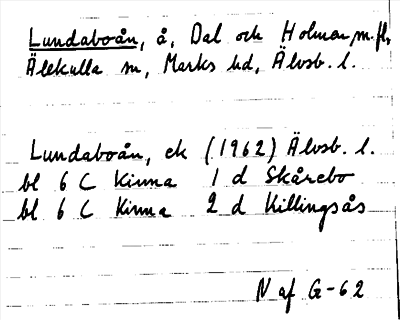 Lundaboån, å, Dal och Holmen m.fl.,
Älekulla sn, Marks hd, Älvsb. l.
Lundaboån, ek (1962) Älvsb. l.
bl 6 C Kinna 1 d Skårebo
bl 6 C Kinna 2 d Killingsås
N af G-62